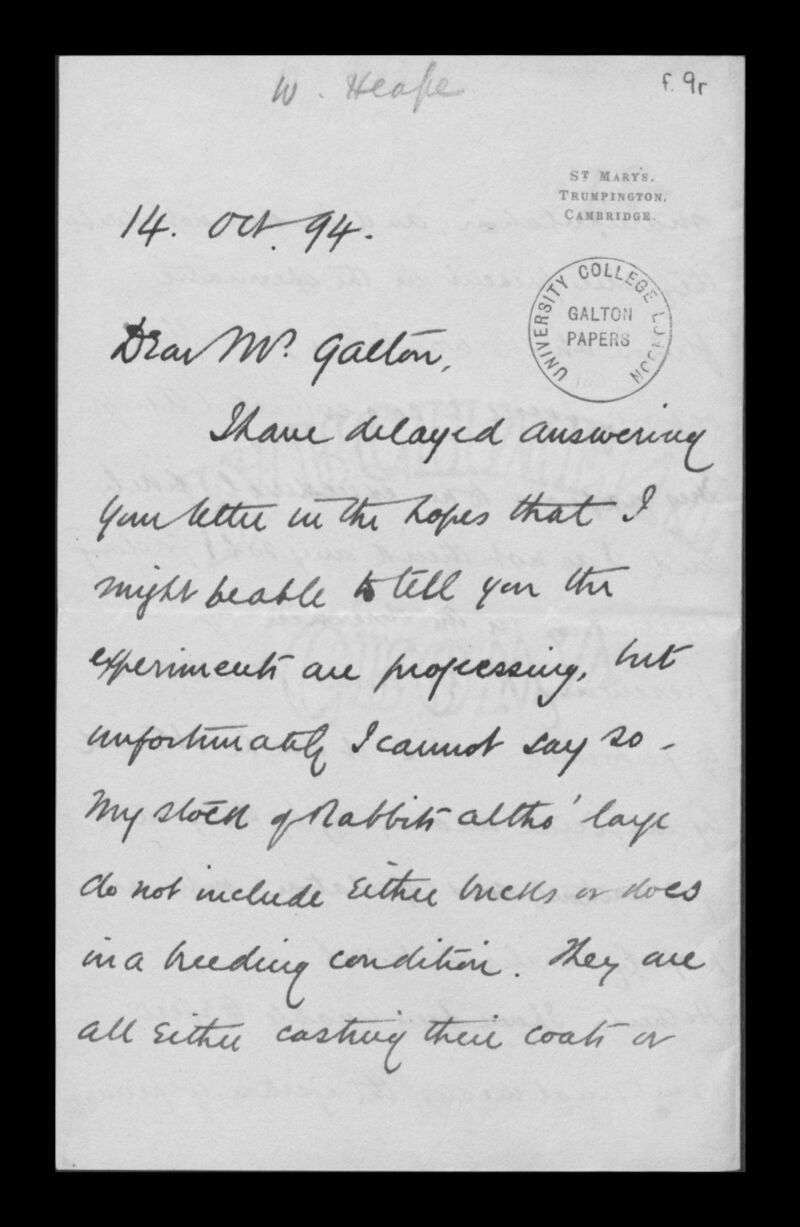 W. Heape
f. 9r
ST MARY'S.
TRUMPINGTON.
CAMBRIDGE.
14. Oct. 94.
UNIVERSITY COLLEGE LONDON
GALTON
PAPERS
Dear Mr. Galton,
I have delayed answering
your letter in the hopes that I
might be able to tell you the
experiments are progressing, but
unfortunately I cannot say so –
My stock of Rabbits altho' large
do not include either bucks or does
in a breeding condition. They are
all either casting their coats or